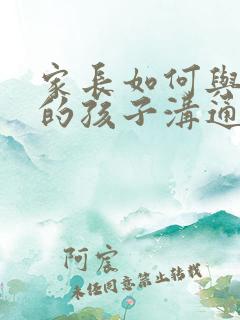 家長如何與
的孩子溝通
阿宸
未任同意禁止转载